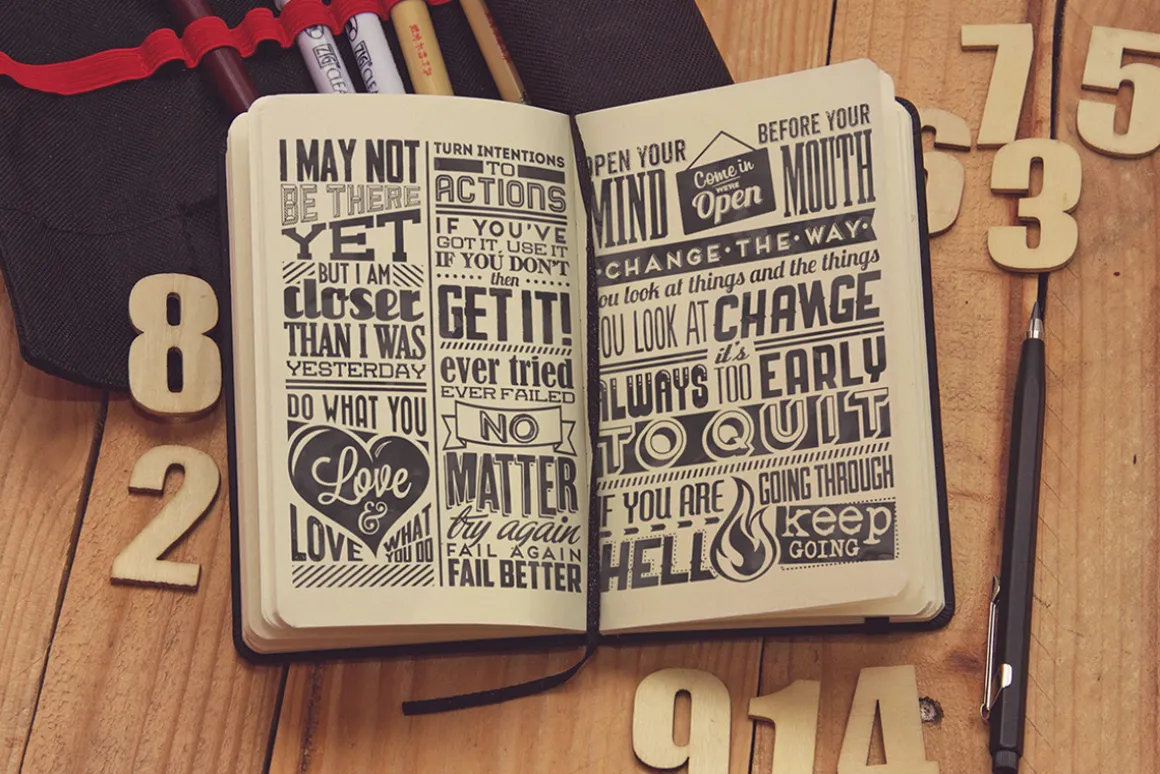 I MAY NOT
BE THERE
YET
BUT I AM
closer
THAN I WAS
YESTERDAY
DO WHAT YOU
Love
&
LOVE WHAT
YOU DO
TURN INTENTIONS
TO
ACTIONS
IF YOU'VE
GOT IT, USE IT
IF YOU DON'T
then
GET IT!
ever tried
EVER FAILED
NO
MATTER
try again
FAIL AGAIN
FAIL BETTER
OPEN YOUR
MIND
Come in
WE'RE
Open
BEFORE YOUR
MOUTH
CHANGE·THE·WAY·
ou look at things and the things
OU LOOK AT CHANGE
it's
ALWAYS TOO EARLY
TO QUIT
IF YOU ARE GOING THROUGH
HELL keep
GOING
ZIG
ZIG
7
5
6
3
8
2
9
1
4